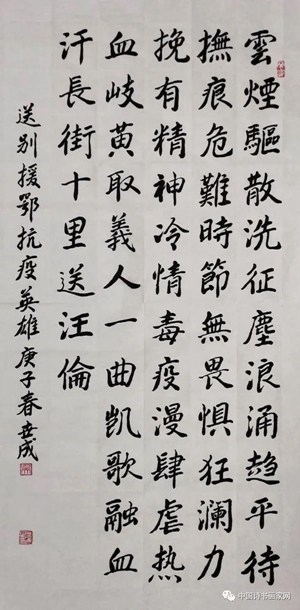 雲煙驅散洗征塵浪涌趋平待
撫痕危難時節無畏懼狂澜力
挽有精神冷情毒疫漫肆虐热
血岐黄取義人一曲凯歌融血
汗長街十里送汪倫
送别援鄂抗疫英雄庚子春世成
中国诗书画家网